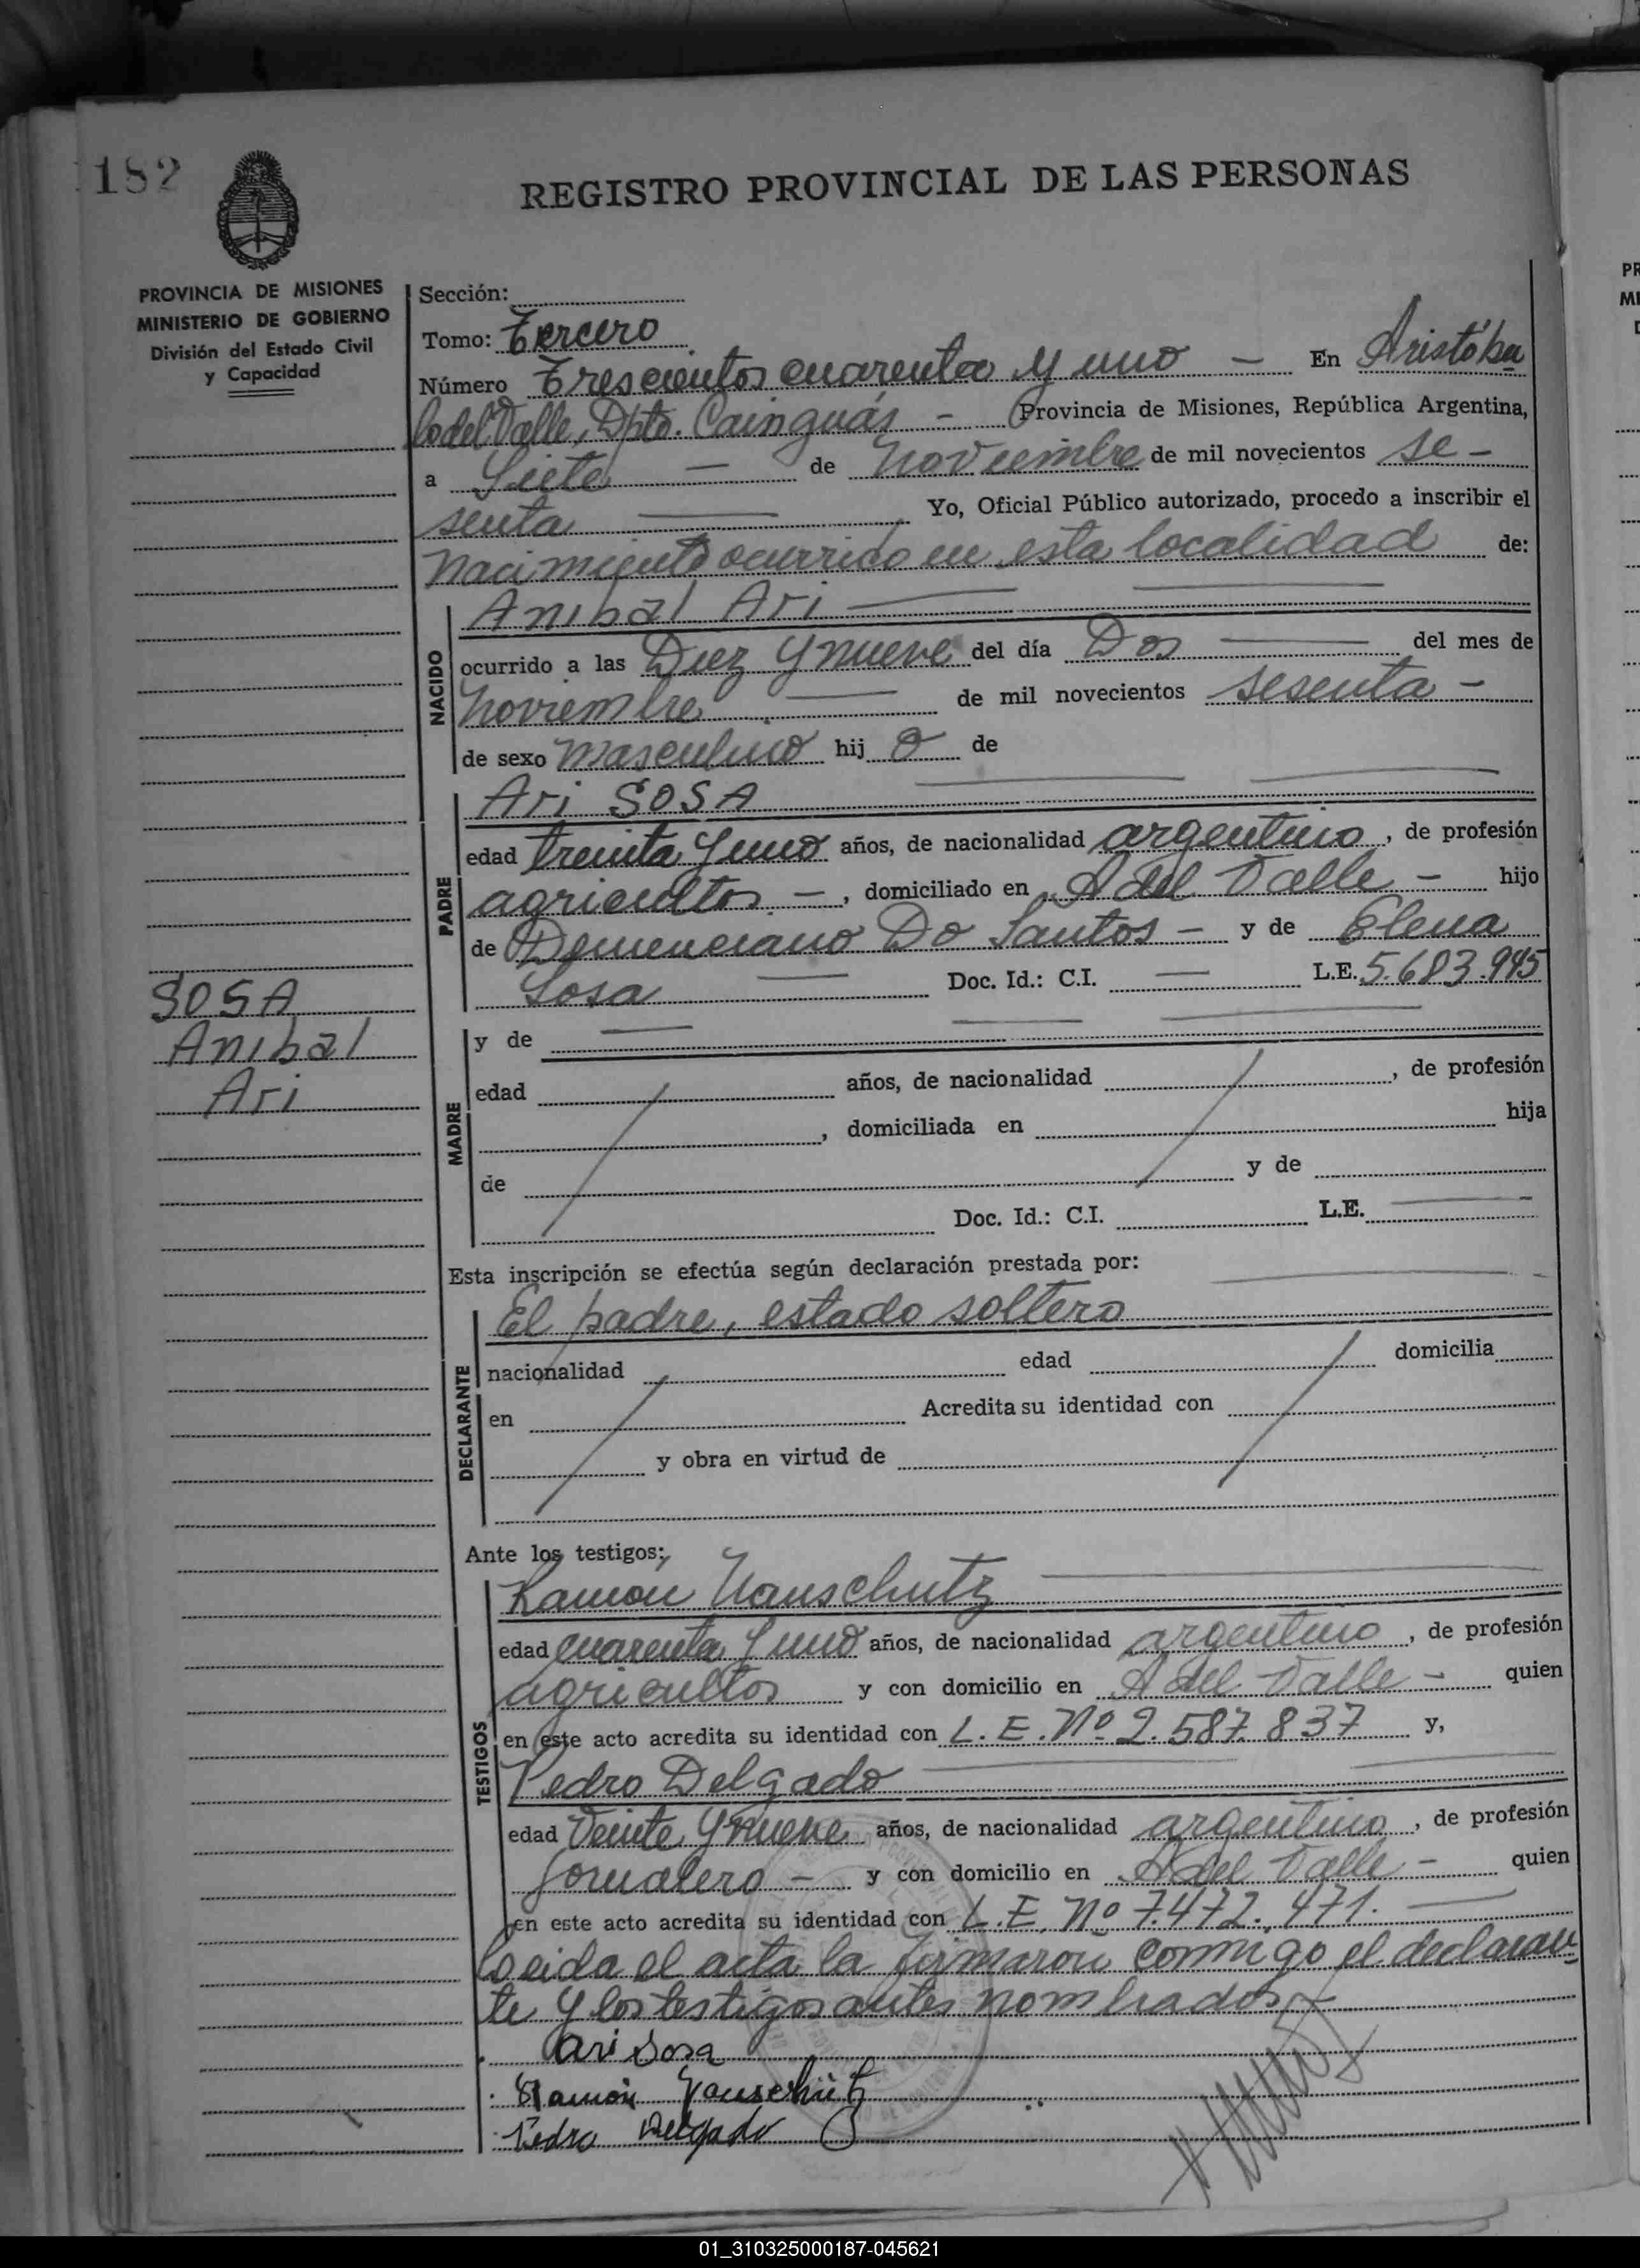 182
REGISTRO PROVINCIAL DE LAS PERSONAS
PROVINCIA DE MISIONES
MINISTERIO DE GOBIERNO
División del Estado Civil
y Capacidad
Sección:
Tomo: Tercero
Número Trescientos cuarenta y uno — En Aristóbu
lo del Valle, Dpto. Cainguás - Provincia de Misiones, República Argentina,
a Siete — de noviembre de mil novecientos se -
senta — Yo, Oficial Público autorizado, procedo a inscribir el
nacimiento ocurrido en esta localidad de:
NACIDO
Anibal Ari
ocurrido a las Diez y nueve del día Dos — del mes de
noviembre — de mil novecientos sesenta -
de sexo masculino hij o de
PADRE
Ari SOSA
edad treinta y uno años, de nacionalidad argentino, de profesión
agricultor. —, domiciliado en A del Valle - hijo
de Demenciano Do Santos - y de Elena
Sosa — Doc. Id.: C.I. — L.E. 5.683.945
SOSA
Anibal
Ari
MADRE
y de —
edad años, de nacionalidad , de profesión
, domiciliada en hija
de y de
Doc. Id.: C.I. L.E. —
Esta inscripción se efectúa según declaración prestada por:
DECLARANTE
El padre, estado soltero
nacionalidad edad domicilia
en Acredita su identidad con
y obra en virtud de
Ante los testigos:
TESTIGOS
Ramón
edad cuarenta y uno años, de nacionalidad argentino, de profesión
agricultor y con domicilio en A del Valle - quien
en este acto acredita su identidad con L. E. Nº 2.587.837 y,
Pedro Delgado
edad Veinte y nueve años, de nacionalidad argentino, de profesión
Jornalero - y con domicilio en A del Valle - quien
en este acto acredita su identidad con L.E. Nº 7.472.471. —
Leida el acta la firmaron conmigo el declaran
te y los testigos antes nombrados.-
Ari Sosa
Ramón
Pedro Delgado
01_310325000187-045621